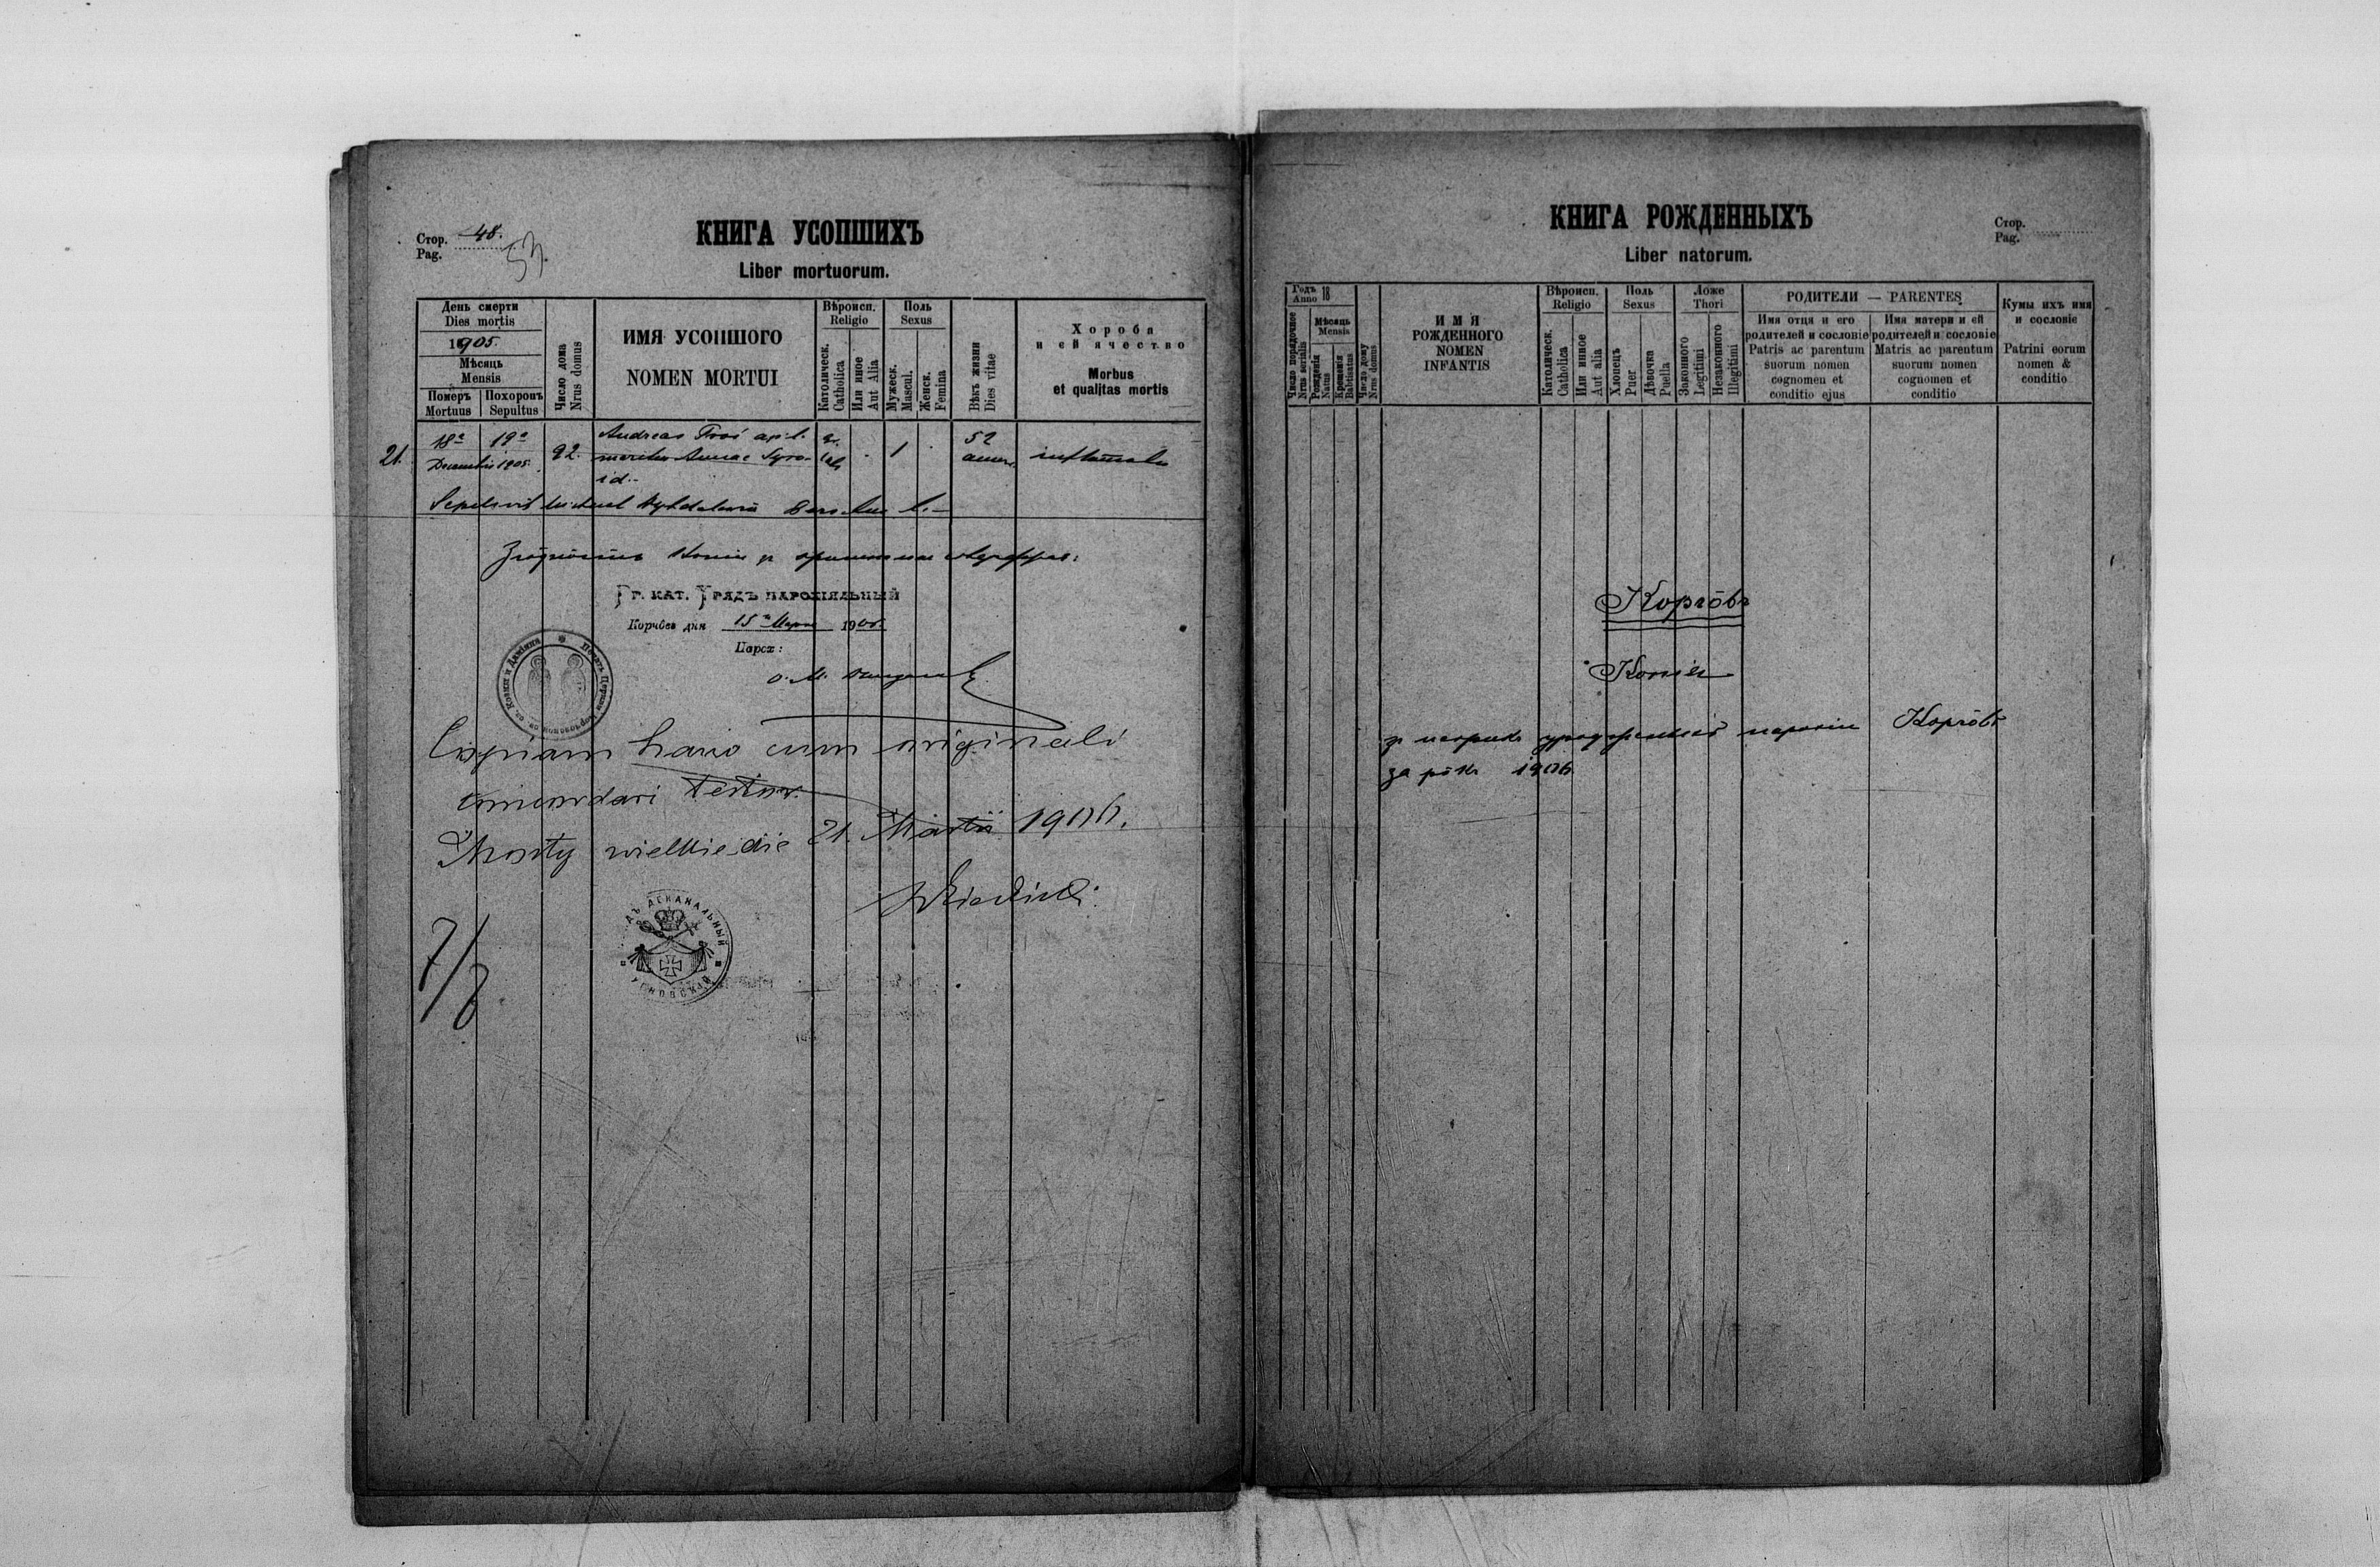 Стор. 48.
Pag.
53.
КНИГА УСОПШИХЪ
Liber mortuorum.
День смерти
Dies mortis
1905.
Мѣсяць
Mensis
Померъ
Mortuus
Похоронъ
Sepultus
Число дома
Nrus domus
ИМЯ УСОПШОГО
NOMEN MORTUI
Вѣроисп.
Religio
Католическ.
Catholica
Или иное
Aut Alia
Поль
Sexus
Мужеск.
Mascul.
Женск.
Femina
Вѣкъ жизни
Dies vitae
Хороба
и ей ячество
Morbus
et qualitas mortis
21.
18ª 19ª
Decembris 1905.
92.
Andreas
maritus Annae
id.
1
52
annor.
Sepelivit Michael
Гр. кат. Урядъ парохіяльный
Корчôвъ дня 15 Марта 190
Парох:
о. М.
Copiam hanc cum originali
concordari testor.
Mosty wielkie die 21. Martii 1906.
7/8
ДЪ ДЕКАНАЛЬНЫЙ
УГНОВСКІЙ
КНИГА РОЖДЕННЫХЪ
Liber natorum.
Стор.
Pag.
Годъ
Anno 18
Число порядочное
Nrus serialis
Мѣсяць
Mensis
Рожденія
Natus
Крещенія
Babtisatus
Число дому
Nrus domus
ИМЯ
РОЖДЕННОГО
NOMEN
INFANTIS
Вѣроисп.
Religio
Католическ.
Catholica
Или инное
Aut alia
Поль
Sexus
Хлопецъ
Puer
Дѣвочка
Puella
Ложе
Thori
Законного
Legitimi
Незаконного
Illegitimi
РОДИТЕЛИ — PARENTES
Имя отця и его
родителей и сословіе
Patris ac parentum
suorum nomen
cognomen et
conditio ejus
Имя матери и ей
родителей и сословіе
Matris ac parentum
suorum nomen
cognomen et
conditio
Кумы ихъ имя
и сословіе
Patrini eorum
nomen &
conditio
Корчôвъ
Копія
парохіи Корчôвъ
за рôкъ 1906